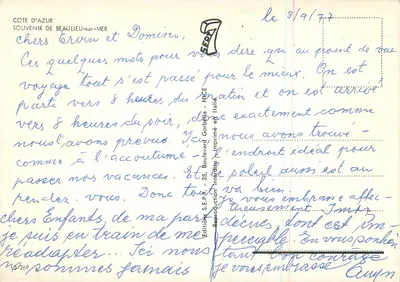 COTE D'AZUR
SOUVENIR DE BEAULIEU-sur-MER
le 3/9/77
chers Ervin et Domino,
Ces quelques mots pour vous dire qu'au point de vue
voyage tout s'est passé pour le mieux. On est
parti vers 8 heures du matin et on est arrivé
vers 8 heures du soir, donc exactement comme
nous l'avons prévu. Ici nous avons trouvé
comme à l'accoutumée l'endroit idéal pour
passer nos vacances. Et le soleil aussi est au
rendez-vous. Donc tout va bien.
je vous embrasse affec-
tueusement
chers Enfants, de ma part
je suis en train de me
réadapter... Ici nous
nous sommes jamais
déçus, tout est im-
peccable. En vous
bon courage
je vous embrasse
SEPR
Editions S.E.P.R. - 35, Boulevard Gorbella - NICE
Reproduction Interdite - Imprimé en Italie